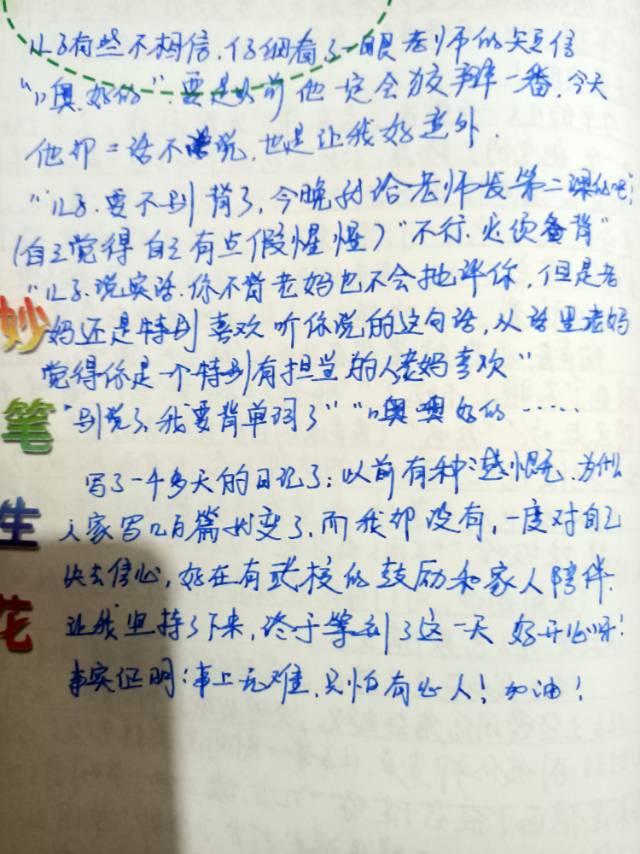 儿子有些不相信,仔细看了一眼老师的短信
“奥,好的”。要是以前他一定会狡辩一番,今天
他却二话不说,也是让我好意外.
“儿子,要不别背了,今晚就给老师发第二课的吧!
(自己觉得自己有点假惺惺)“不行.必须备背”
“儿子.说实话.你不背老妈也不会批评你,但是老
妈还是特别喜欢听你说的这句话,从话里老妈
觉得你是一个特别有担当的人老妈喜欢”
“别说了,我要背单词了”“奥奥好的……
写了一千多天的日记了;以前有种遗憾,为什么
人家写几百篇就变了,而我却没有,一度对自己
失去信心,好在有武校的鼓励和家人陪伴.
让我坚持了下来,终于等到了这一天 好开心呀!
事实证明:事上无难,只怕有心人!加油!
妙
笔
生
花